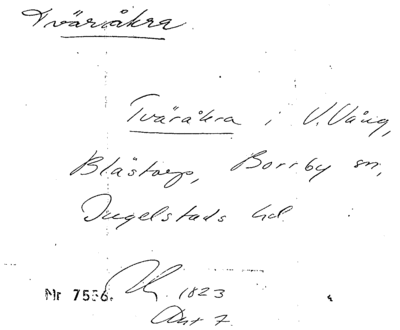 Tväråkra
Tväråkra i V. Vång,
Blästorp, Borrby sn,
Ingelstads hd
Nr 7556. 1823
Akt 7